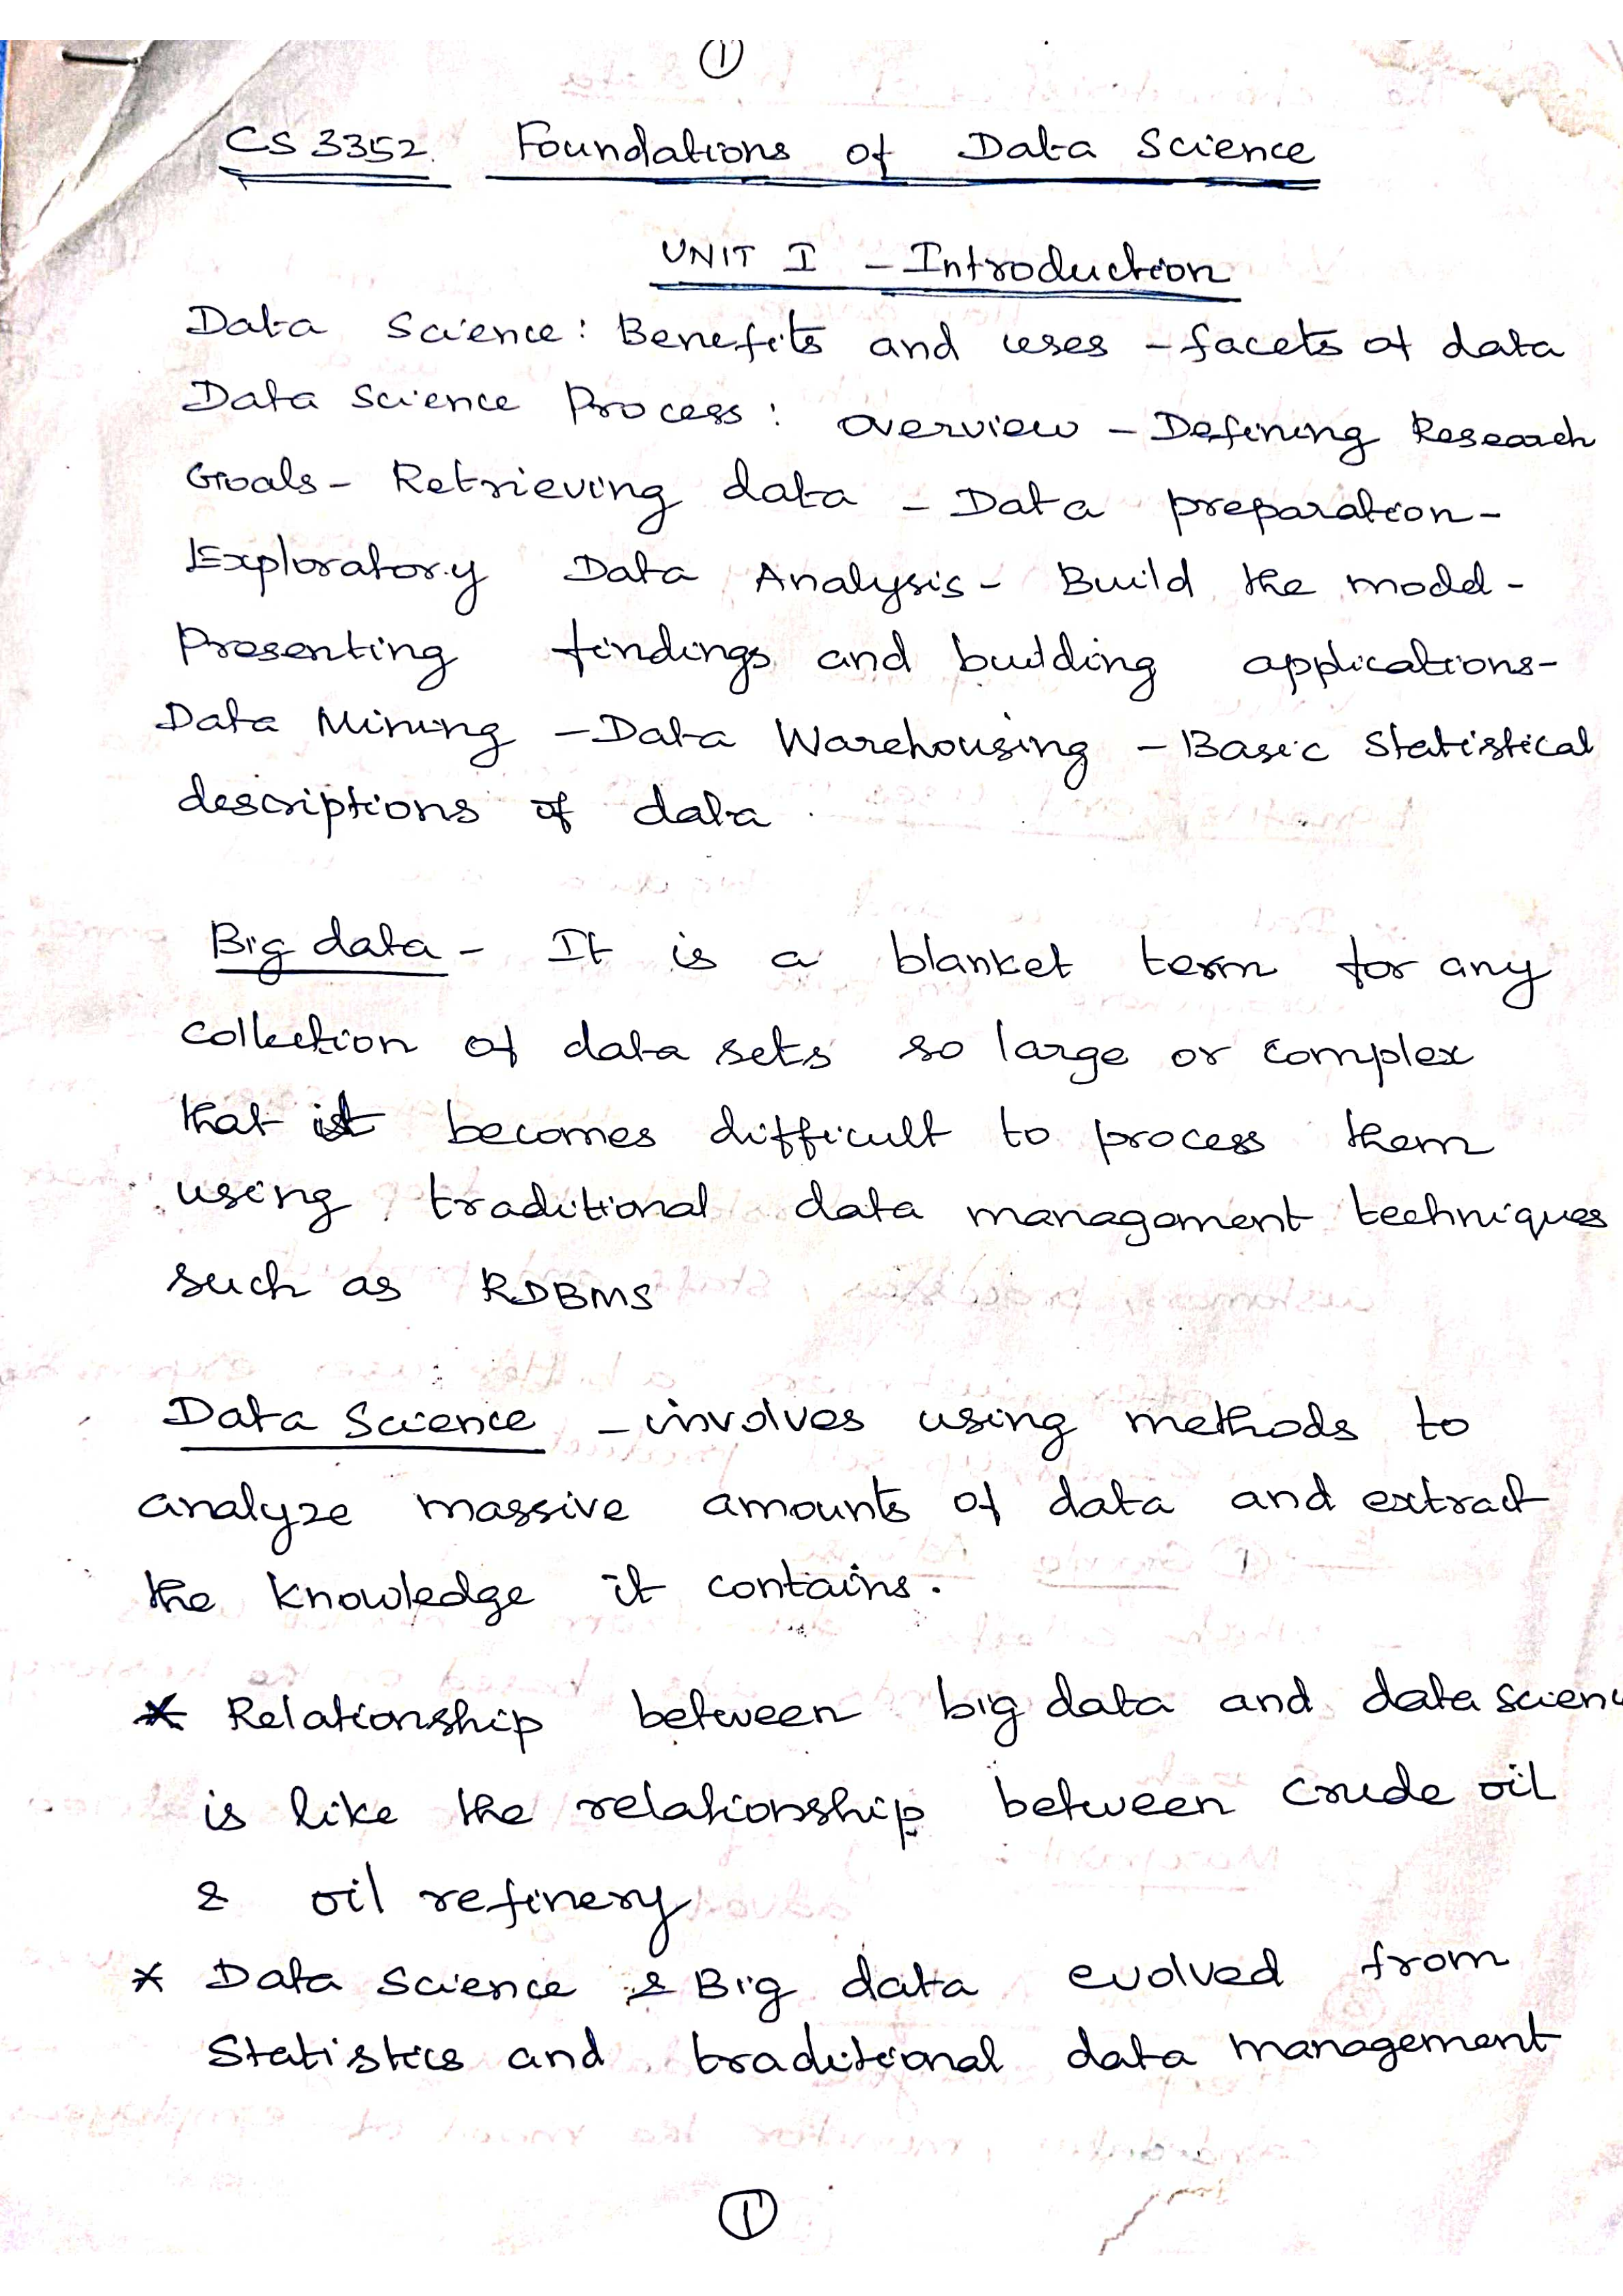 ①
CS 3352. Foundations of Data Science
UNIT I - Introduction
Data Science: Benefits and uses - facets of data
Data Science Process: Overview - Defining Research
Goals - Retrieving data - Data preparation -
Exploratory Data Analysis - Build the model -
Presenting findings and building applications -
Data Mining - Data Warehousing - Basic Statistical
descriptions of data
Big data - It is a blanket term for any
collection of data sets so large or complex
that it becomes difficult to process them
using traditional data management techniques
such as RDBMS
Data Science - involves using methods to
analyze massive amounts of data and extract
the knowledge it contains.
* Relationship between big data and data scienc
is like the relationship between crude oil
& oil refinery
* Data Science & Big data evolved from
Statistics and traditional data management
①